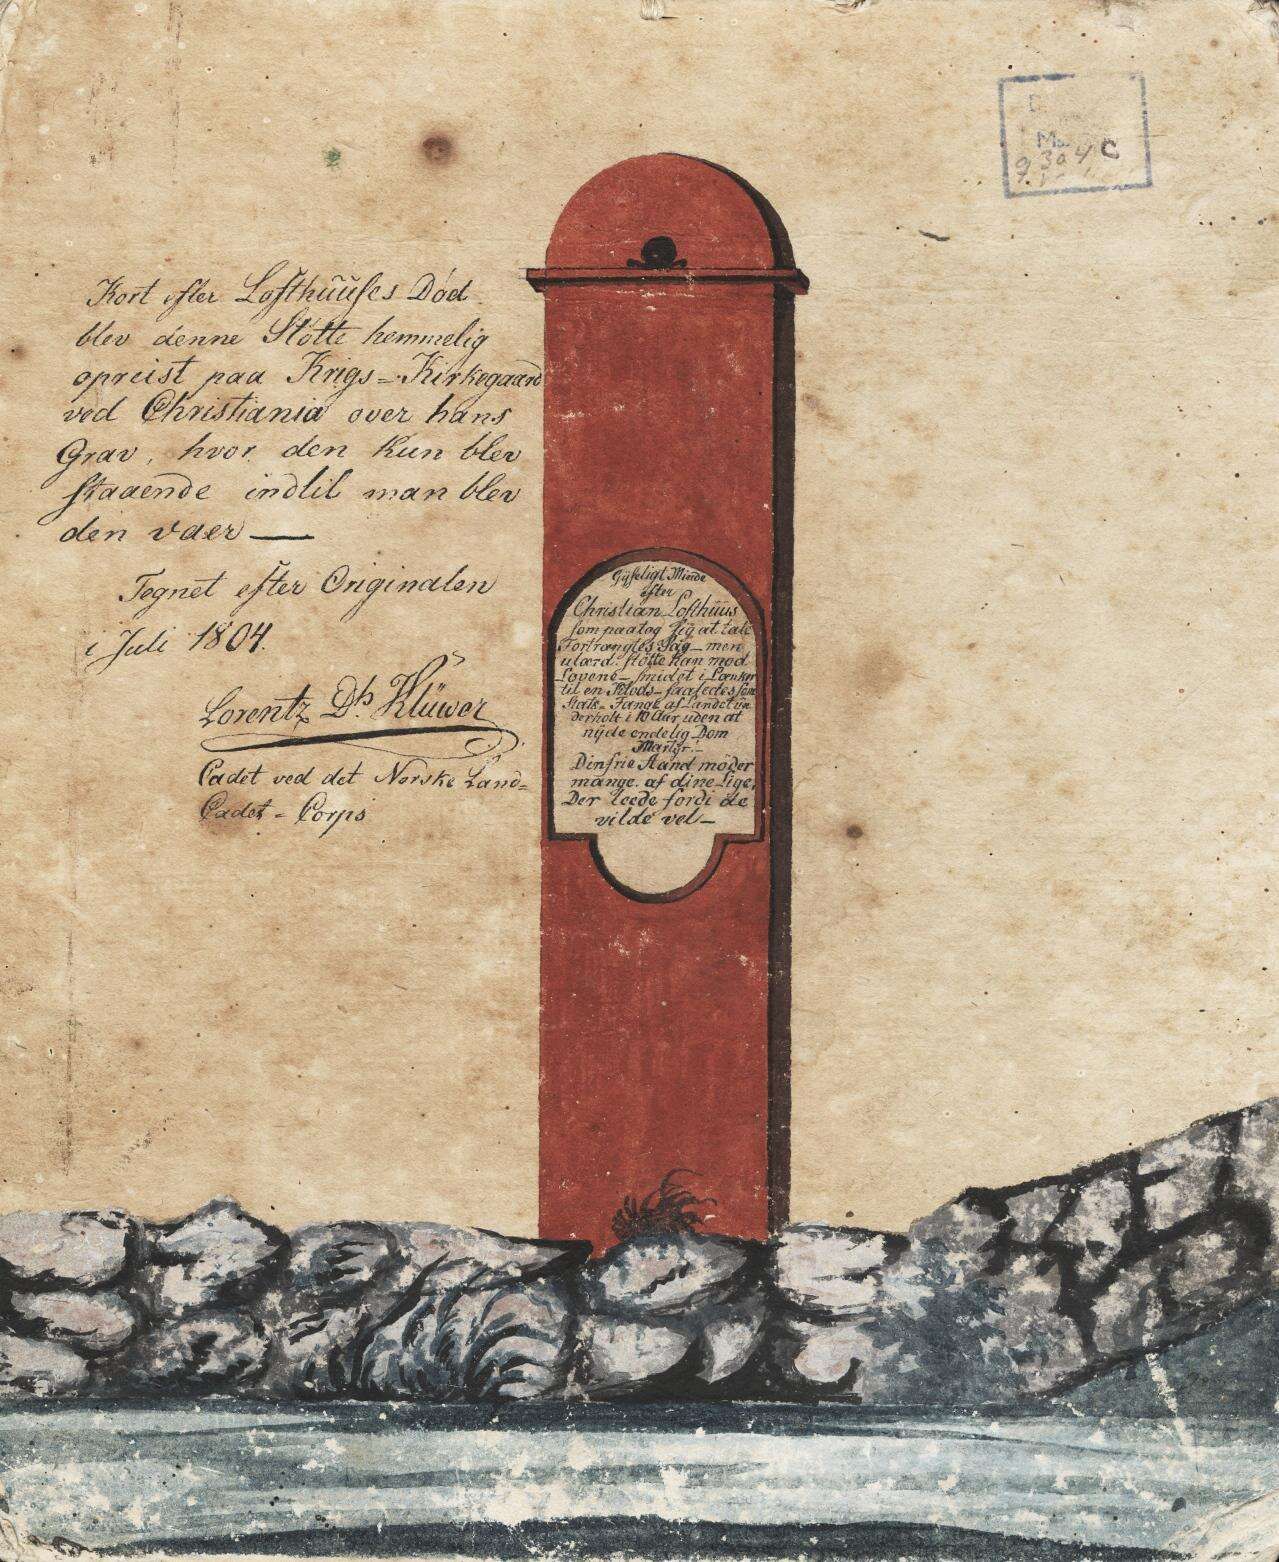 Kort efter Lofthuŭses Död
blev denne Stötte hemmelig
opreist paa Krigs=Kirkegaard
ved Christiania over hans
Grav, hvor den kun blev
staaende indtil man blev
den vaer —
Tegnet efter Originalen
i Juli 1804.
Lorentz Dh. Klüwer
Cadet ved det Norske Land=
Cadet-Corps
9304 C
Gÿseligt Minde
efter
Christian Lofthuus
som paatog sig at tale
Fortrængtes Sag_ men
ulærd. støtte kan mod
Lovene_ smidet i Lænker
til en Klods_ saaledes som
Stats=Fange af Landet un
derholt i 10 Aar uden at
nyde endelig Dom
Martyr!_
Din frie Aand möder
mange af dine Lige,
Der leede fordi de
vilde vel_